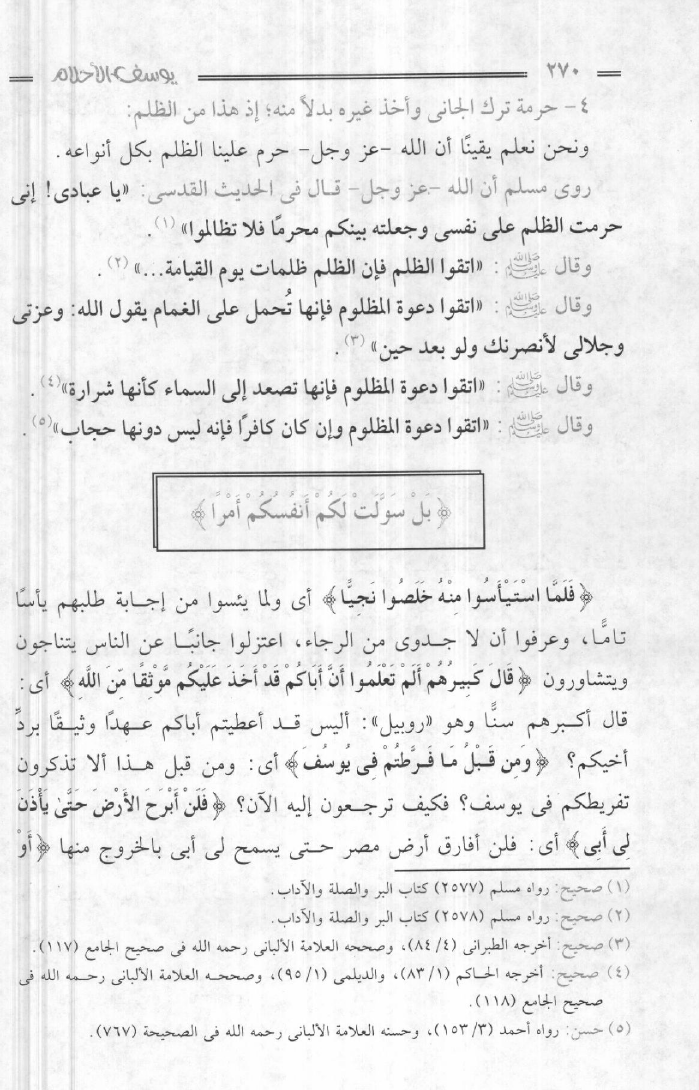 ٢٧٠ يوسف الأحلام
٤- حرمة ترك الجانى وأخذ غيره بدلاً منه؛ إذ هذا من الظلم:
ونحن نعلم يقينًا أن الله -عز وجل- حرم علينا الظلم بكل أنواعه.
روى مسلم أن الله -عز وجل- قـال فى الحديث القدسى: «يا عبادى! إنى
حرمت الظلم على نفسى وجعلته بينكم محرمًا فلا تظالموا» (١).
وقال ﷺ: «اتقوا الظلم فإن الظلم ظلمات يوم القيامة...» (٢).
وقال ﷺ: «اتقوا دعوة المظلوم فإنها تُحمل على الغمام يقول الله: وعزتى
وجلالى لأنصرنك ولو بعد حين» (٣).
وقال ﷺ: «اتقوا دعوة المظلوم فإنها تصعد إلى السماء كأنها شرارة» (٤).
وقال ﷺ: «اتقوا دعوة المظلوم وإن كان كافرًا فإنه ليس دونها حجاب» (٥).
﴿بَلْ سَوَّلَتْ لَكُمْ أَنفُسُكُمْ أَمْرًا﴾
﴿فَلَمَّا اسْتَيْأَسُوا مِنْهُ خَلَصُوا نَجِيًّا﴾ أى ولما يئسوا من إجـابة طلبهم يأسًا
تامًّا، وعرفوا أن لا جـدوى من الرجاء، اعتزلوا جانبًـا عن الناس يتناجون
ويتشاورون ﴿قَالَ كَبِيرُهُمْ أَلَمْ تَعْلَمُوا أَنَّ أَبَاكُمْ قَدْ أَخَذَ عَلَيْكُم مَّوْثِقًا مِّنَ اللَّهِ﴾ أى:
قال أكـبرهم سنًّا وهو «روبيل»: أليس قـد أعطيتم أباكم عـهدًا وثيـقًا بردِّ
أخيكم؟ ﴿وَمِن قَبْلُ مَا فَرَّطتُمْ فِى يُوسُفَ﴾ أى: ومن قبل هـذا ألا تذكرون
تفريطكم فى يوسف؟ فكيف ترجـعون إليه الآن؟ ﴿فَلَنْ أَبْرَحَ الأَرْضَ حَتَّىٰ يَأْذَنَ
لِى أَبِى﴾ أى: فلن أفارق أرض مصر حتـى يسمح لى أبى بالخروج منها ﴿أَوْ
(١) صحيح: رواه مسلم (٢٥٧٧) كتاب البر والصلة والآداب.
(٢) صحيح: رواه مسلم (٢٥٧٨) كتاب البر والصلة والآداب.
(٣) صحيح: أخرجه الطبرانى (٤/ ٨٤)، وصححه العلامة الألبانى رحمه الله فى صحيح الجامع (١١٧).
(٤) صحيح: أخرجه الحـاكم (١/ ٨٣)، والديلمى (١/ ٩٥)، وصححـه العلامة الألبانى رحـمه الله فى
صحيح الجامع (١١٨).
(٥) حسن: رواه أحمد (٣/ ١٥٣)، وحسنه العلامة الألبانى رحمه الله فى الصحيحة (٧٦٧).